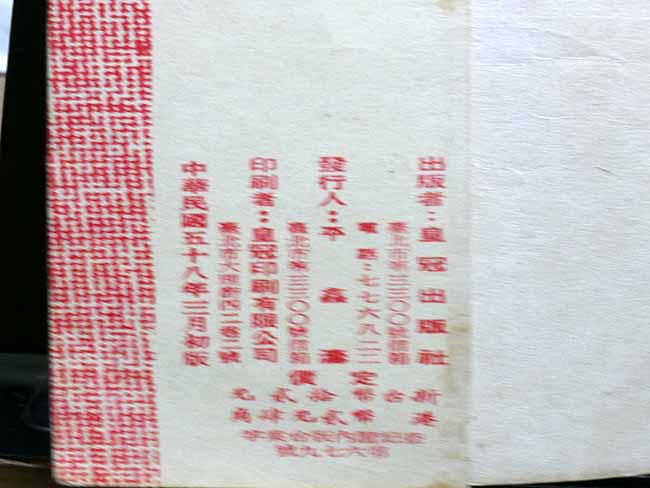 出版者：皇冠出版社
臺北市郵三三〇〇號信箱
電話：七七六八二二
發行人：平鑫濤
臺北市郵三三〇〇號信箱
印刷者：皇冠印刷有限公司
中華民國五十八年三月初版
定價
新台幣拾貳元
港幣貳元肆角
登記證內版台業字
第六七九號